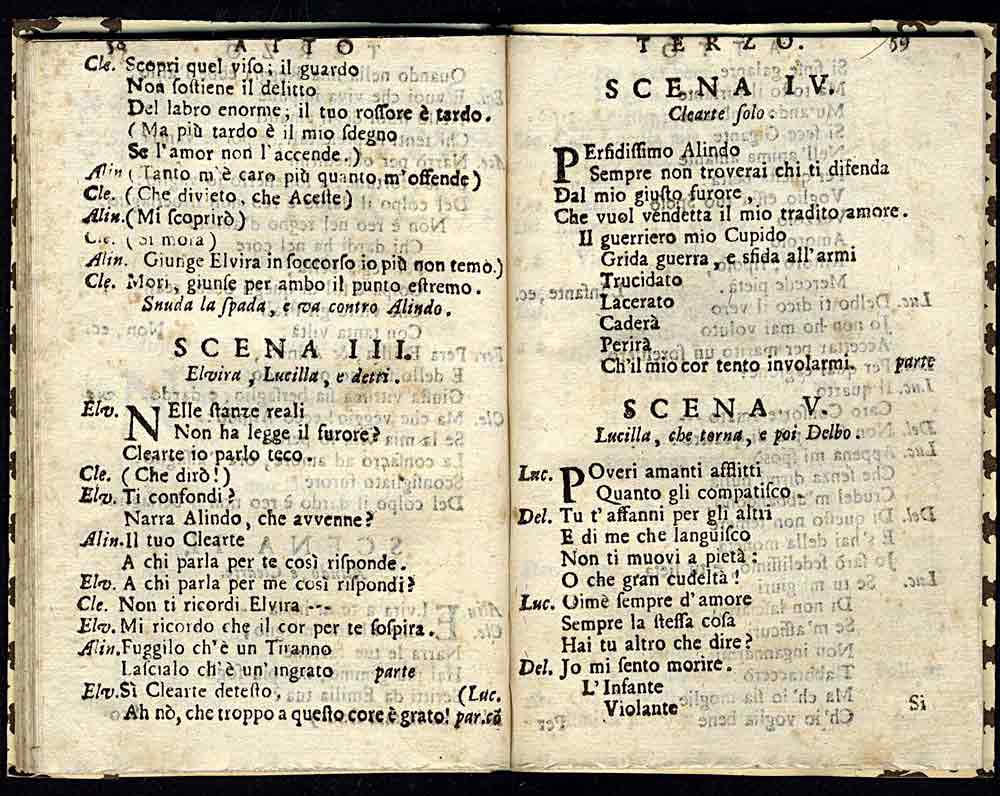 ATTO
Cle. Scopri quel viſo; il guardo
Non ſoſtiene il delitto
Del labro enorme; il tuo roſſore è tardo.
(Ma più tardo è il mio ſdegno
Se l'amor non l'accende.)
Alin (Tanto m'è caro più quanto m'offende)
Cle. (Che divieto, che Aceſte)
Alin. (Mi ſcoprirò)
Cle. (Si mora)
Alin. Giunge Elvira in ſoccorſo io più non temo.)
Cle. Mori, giunſe per ambo il punto eſtremo.
Snuda la ſpada, e va contro Alindo.
SCENA III.
Elvira, Lucilla, e detti.
Elv. NElle ſtanze reali
Non ha legge il furore?
Clearte io parlo teco.
Cle. (Che dirò!)
Elv. Ti confondi?
Narra Alindo, che avvenne?
Alin. Il tuo Clearte
A chi parla per te così riſponde.
Elv. A chi parla per me così riſpondi?
Cle. Non ti ricordi Elvira ---
Elv. Mi ricordo che il cor per te ſoſpira.
Alin. Fuggilo ch'è un Tiranno
Laſcialo ch'è un'ingrato parte
Elv. Sì Clearte deteſto, (Luc.
Ah nò, che troppo a queſto core è grato! par.cō
TERZO. 59
SCENA IV.
Clearte ſolo.
PErfidiſſimo Alindo
Sempre non troverai chi ti difenda
Dal mio giuſto furore,
Che vuol vendetta il mio tradito amore.
Il guerriero mio Cupido
Grida guerra, e sfida all'armi
Trucidato
Lacerato
Caderà
Perirà
Ch'il mio cor tento involarmi. parte
SCENA V.
Lucilla, che torna, e poi Delbo.
Luc. POveri amanti afflitti
Quanto gli compatiſco.
Del. Tu t'affanni per gli altri
E di me che languiſco
Non ti muovi a pietà:
O che gran cudeltà!
Luc. Oimè ſempre d'amore
Sempre la ſteſſa coſa
Hai tu altro che dire?
Del. Jo mi ſento morire.
L'Infante
Violante
Si